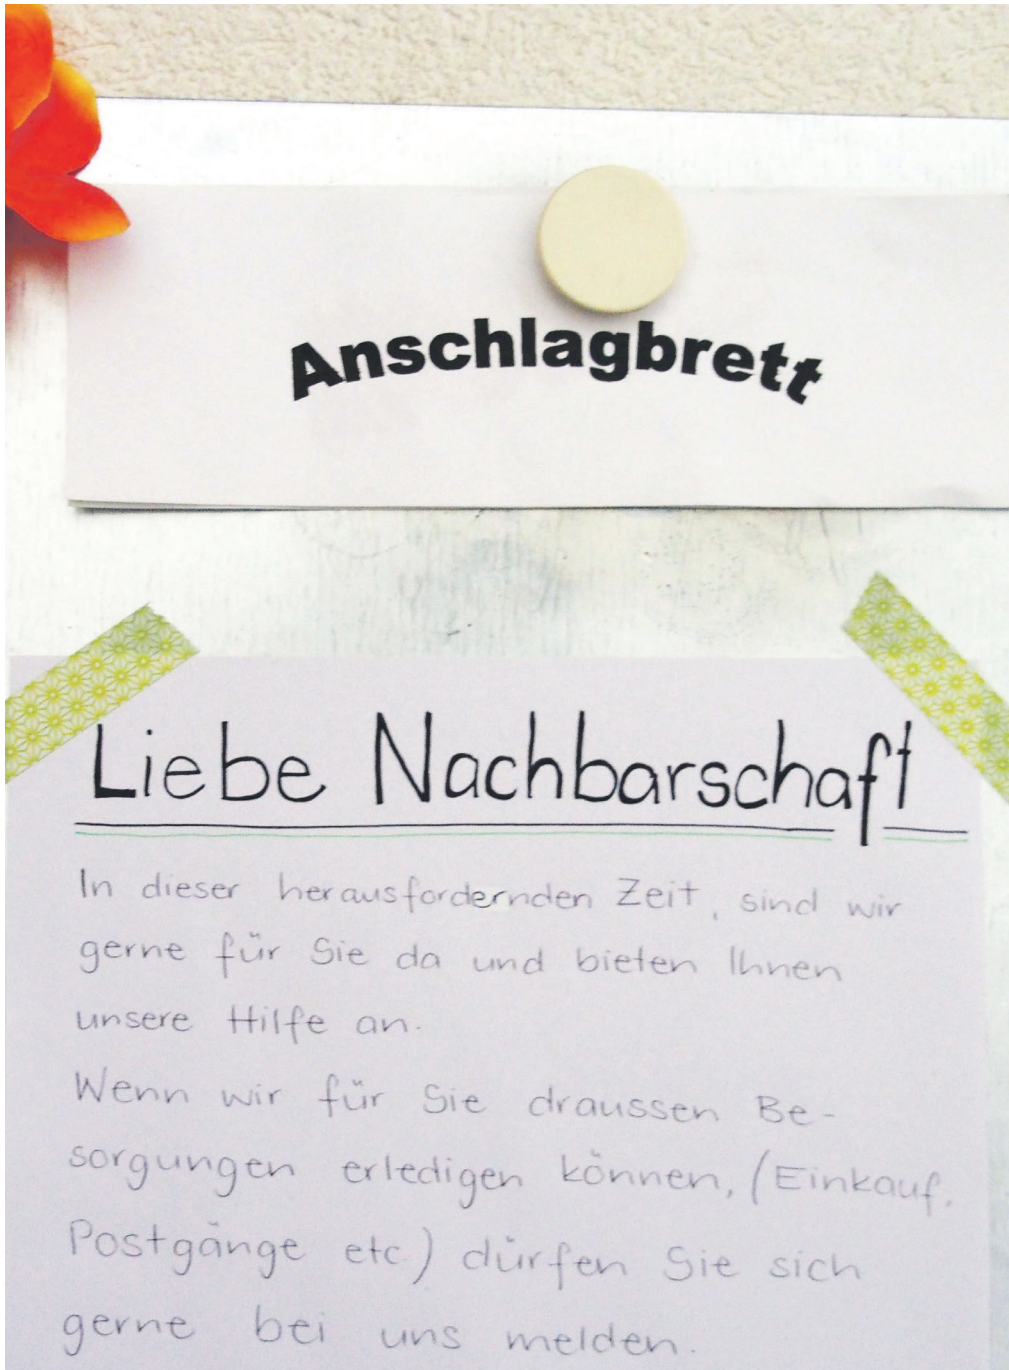 Anschlagbrett
Liebe Nachbarschaft
In dieser herausfordernden Zeit, sind wir
gerne für Sie da und bieten Ihnen
unsere Hilfe an.
Wenn wir für Sie draussen Be-
sorgungen erledigen können, (Einkauf,
Postgänge etc) dürfen Sie sich
gerne bei uns melden.